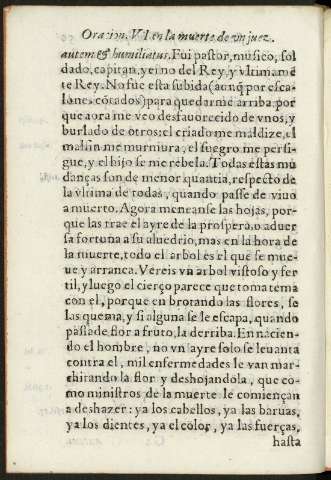 Oracion. VI. en la muerte de vn juez.
autem & humiliatus. Fui pastor, musico, sol
dado, capitan, yerno del Rey, y vltimamẽ
te Rey. No fue esta subida (aunq̃ por esca-
lones cõtados) para quedarme arriba: por
que aora me veo desfauorecido de vnos, y
burlado de otros: el criado me maldize, el
malsin me murmura, el suegro me persi-
gue, y el hijo se me rebela. Todas estas mu
danças son de menor quantia, respecto de
la vltima de todas, quando passè de viuo
a muerto. Agora meneanse las hojas, por-
que las trae el ayre de la prospera, o aduer
sa fortuna a su aluedrio, mas en la hora de
la muerte, todo el arbol es el que se mue-
ue y arranca. Vereis vn arbol vistoso y fer
til, y luego el cierço parece que toma tema
con el, porque en brotando las flores, se
las quema, y si alguna se le escapa, quando
passa de flor a fruto, la derriba. En nacien-
do el hombre, no vn ayre solo se leuanta
contra el, mil enfermedades le van mar-
chitando la flor y deshojandola, que co-
mo ministros de la muerte le comiençan
a deshazer: ya los cabellos, ya las baruas,
ya los dientes, ya el color, ya las fuerças,
hasta